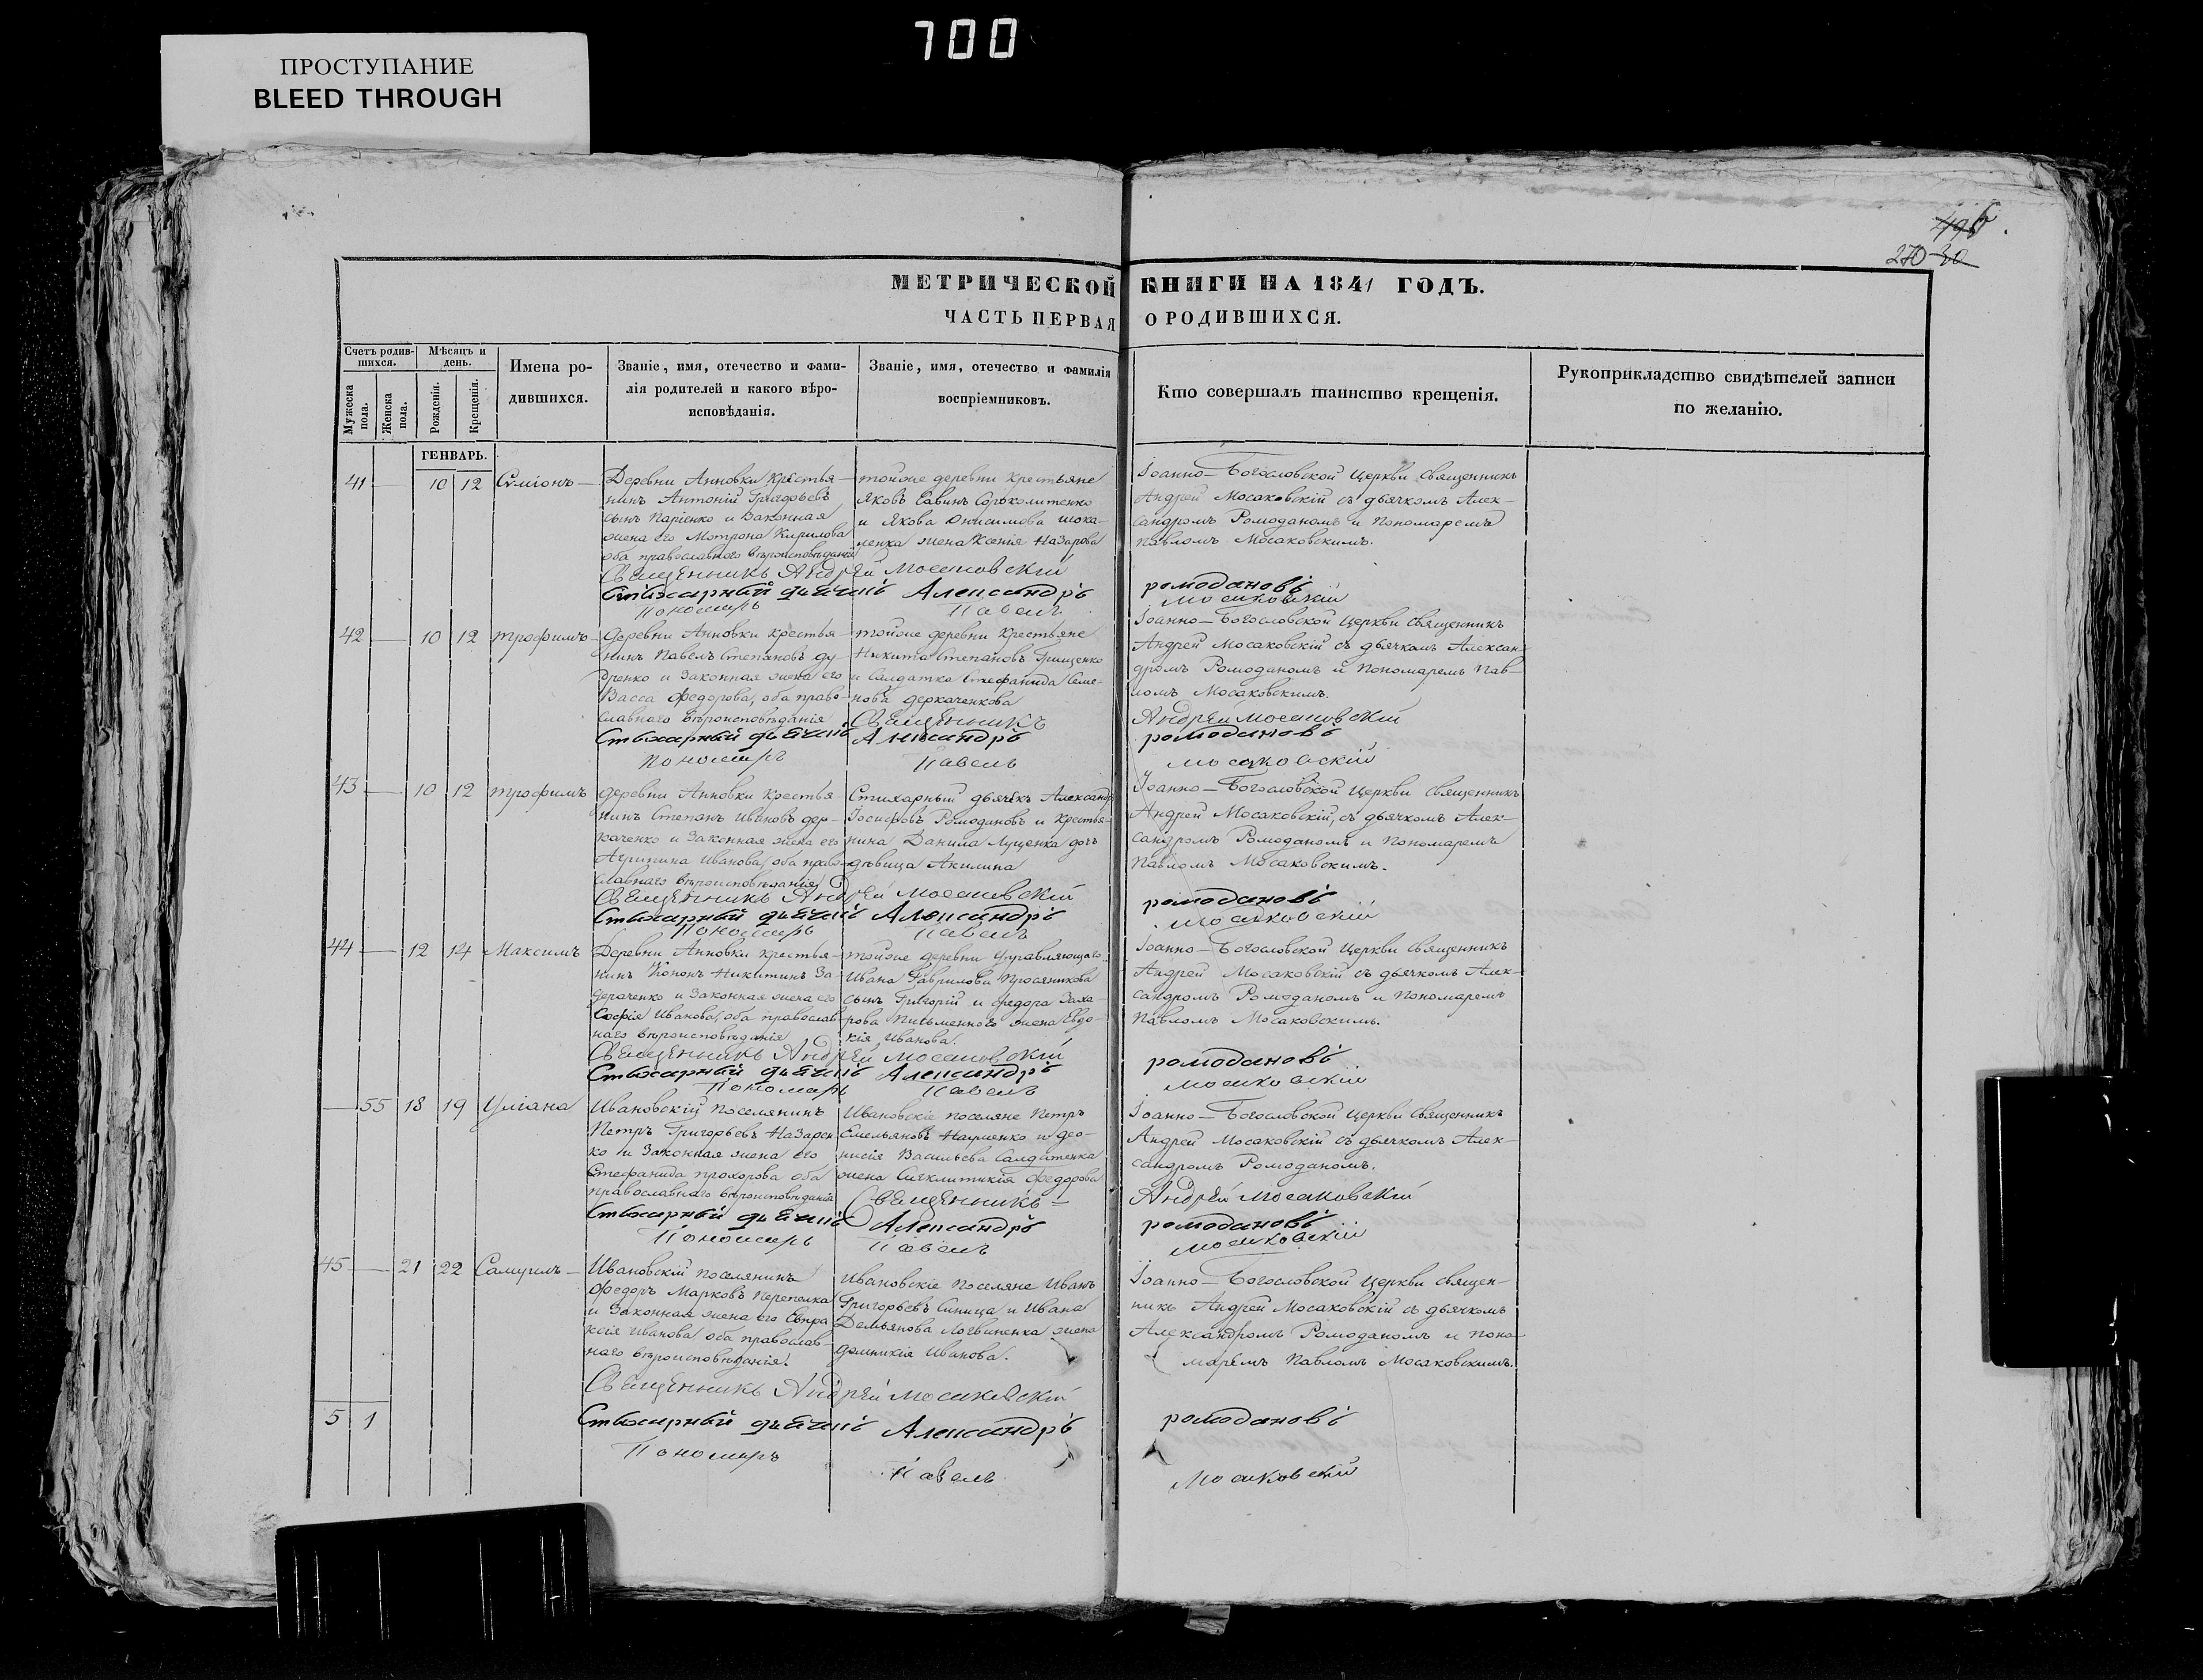 700
ПРОСТУПАНИЕ
BLEED THROUGH
270
МЕТРИЧЕСКОЙ КНИГИ НА 1841 ГОДЪ.
ЧАСТЬ ПЕРВАЯ О РОДИВШИХСЯ.
Счетъ родив-
шихся.
Мужеска
пола.
Женска
пола.
Мѣсяцъ и
день.
Рожденія.
Крещенія.
Имена ро-
дившихся.
Званіе, имя, отечество и фами-
лія родителей и какого вѣро-
исповѣданія.
Званіе, имя, отечество и фамилія
воспріемниковъ.
Кто совершалъ таинство крещенія.
Рукоприкладство свидѣтелей записи
по желанію.
ГЕНВАРЬ.
41 — 10 12 Сѵміонъ
Деревни Анновки Крестья-
нинъ Антоній Григорьевъ
сынъ и Законная
жена его Мотрона Кирилова
оба православнаго вѣроисповѣданія
тойже деревни крестьяне
Яковъ Савинъ
и Якова Онисимова
жена Ксенія Назарова
Іоанно-Богословской Церкви Священникъ
Андрей Мосаковскій съ дьячкомъ Алек-
сандромъ Ромоданомъ и Пономаремъ
Павломъ Мосаковскимъ.
Священникъ Андрей Мосаковскій
Стихарный дьячекъ Александръ Ромодановъ
Пономарь Павелъ Мосаковскій
42 — 10 12 Трофимъ
Деревни Анновки крестья-
нинъ Павелъ Степановъ
и Законная жена его
Васса Федорова, оба право-
славнаго вѣроисповѣданія
тойже деревни Крестьяне
Никита Степановъ Грищенко
и Салдатка Стефанида Семе-
нова деркаченкова
Іоанно-Богословской Церкви Священникъ
Андрей Мосаковскій съ дьячкомъ Алексан-
дромъ Ромоданомъ и Пономаремъ Пав-
ломъ Мосаковскимъ.
Священникъ Андрей Мосаковскій
Стихарный дьячекъ Александръ Ромодановъ
Пономарь Павелъ Мосаковскій
43 — 10 12 Трофимъ
деревни Анновки Крестья-
нинъ Степанъ Ивановъ дер-
каченко и Законная жена его
Агрипина Иванова, оба право-
славнаго вѣроисповѣданія
Стихарный дьячекъ Александръ
Іосифовъ Ромодановъ и крестья-
нина Данила Луценка дочь
дѣвица Акилина
Іоанно-Богословской Церкви Священникъ
Андрей Мосаковскій, съ дьячкомъ Алек-
сандромъ Ромоданомъ и Пономаремъ
Павломъ Мосаковскимъ.
Священникъ Андрей Мосаковскій
Стихарный дьячекъ Александръ Ромодановъ
Пономарь Павелъ Мосаковскій
44 — 12 14 Максимъ
Деревни Анновки крестья-
нинъ Кононъ Никитинъ
и Законная жена его
Софія Иванова, оба православ-
наго вѣроисповѣданія
тойже деревни Управляющаго
Ивана Гаврилова Просяникова
сынъ Григорій и Федора Заха-
рова Письменнаго жена Евдо-
кія Иванова.
Іоанно-Богословской Церкви Священникъ
Андрей Мосаковскій съ дьячкомъ Алек-
сандромъ Ромоданомъ и Пономаремъ
Павломъ Мосаковскимъ.
Священникъ Андрей Мосаковскій
Стихарный дьячекъ Александръ Ромодановъ
Пономарь Павелъ Мосаковскій
— 55 18 19 Уліана
Ивановскій поселянинъ
Петръ Григорьевъ Назарен-
ко и Законная жена его
Стефанида Прохорова оба
православнаго вѣроисповѣданія
Ивановскіе поселяне Петръ
Емельяновъ Науменко и део-
нисія Васильева Салдатенка
жена Сигклитикія Федорова
Іоанно-Богословской Церкви Священникъ
Андрей Мосаковскій съ дьячкомъ Алек-
сандромъ Ромоданомъ.
Священникъ Андрей Мосаковскій
Стихарный дьячекъ Александръ Ромодановъ
Пономарь Павелъ Мосаковскій
45 — 21 22 Самуилъ
Ивановскій Поселянинъ
Федоръ Марковъ Перепелка
и Законная жена его Евпра-
ксія Иванова оба православ-
наго вѣроисповѣданія.
Ивановскіе Поселяне Иванъ
Григорьевъ Синица и Ивана
Демьянова Логвиненка жена
домникія Иванова.
Іоанно-Богословской Церкви Священ-
никъ Андрей Мосаковскій съ дьячкомъ
Александромъ Ромоданомъ и Поно-
маремъ Павломъ Мосаковскимъ.
Священникъ Андрей Мосаковскій
Стихарный дьячекъ Александръ Ромодановъ
Пономарь Павелъ Мосаковскій
5 1